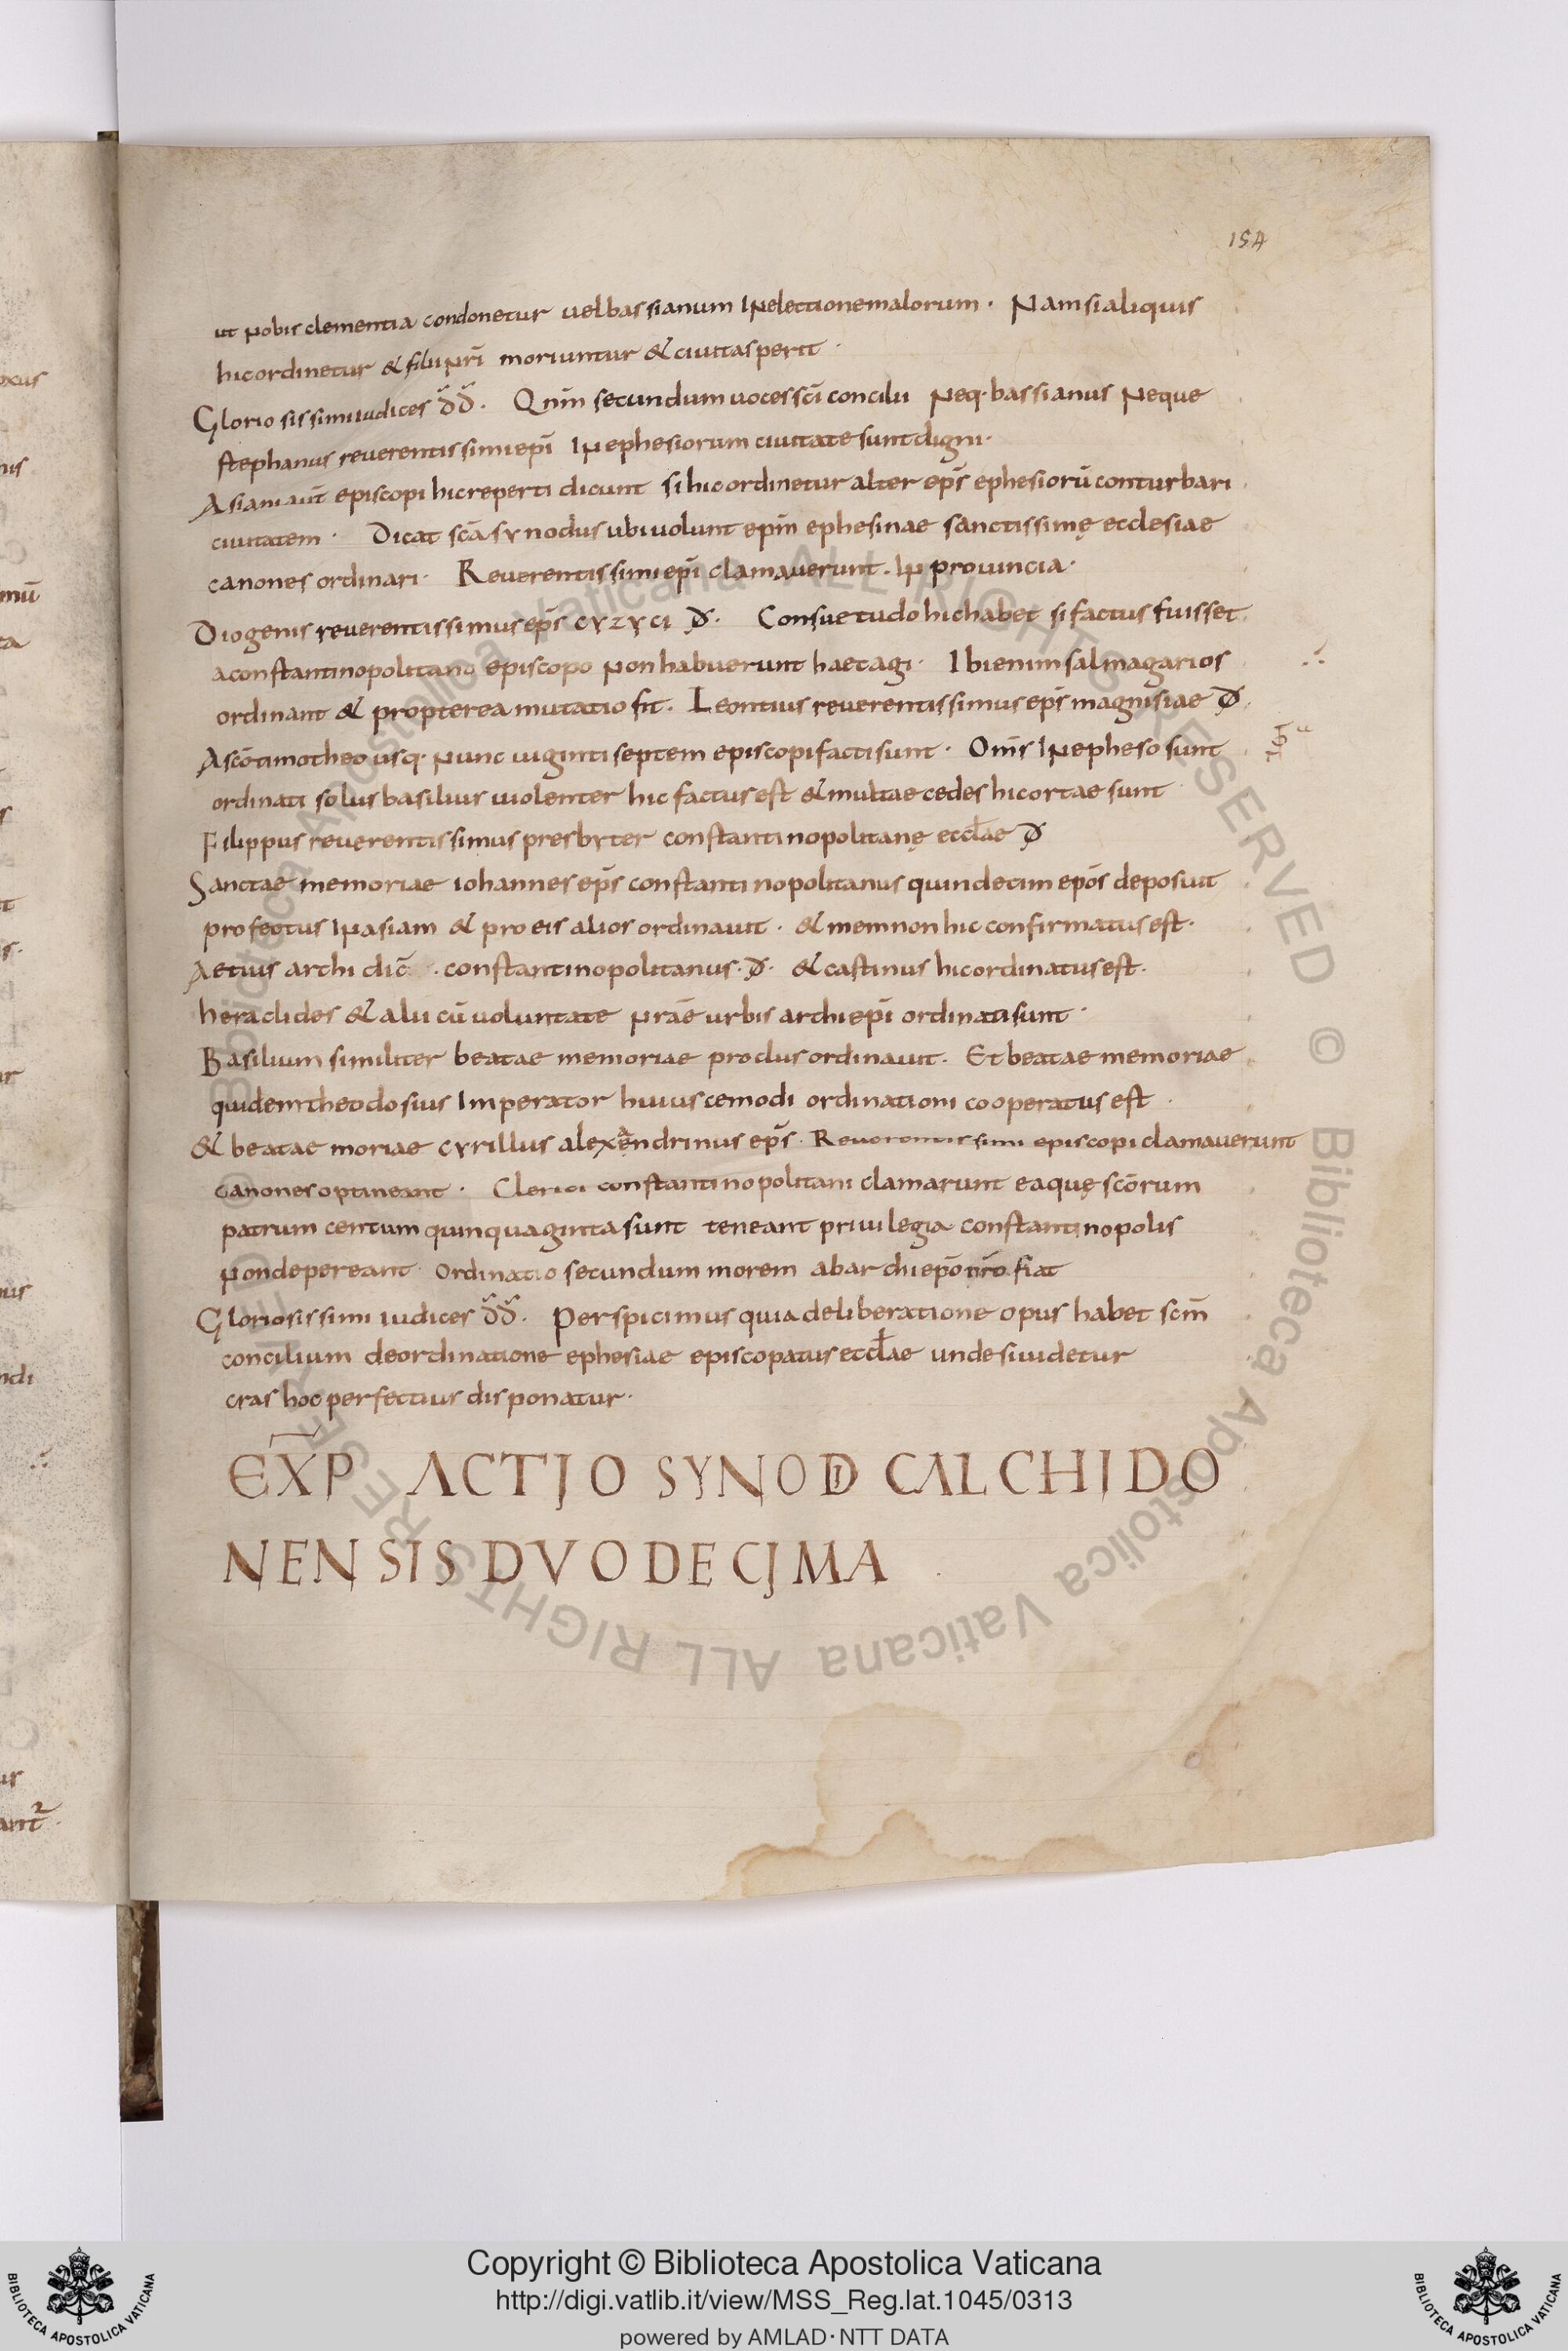 154
ut nobis clementia condonetur uel bassianum in electione malorum · Nam si aliquis
hic ordinetur & filii nr̄i moriuntur & ciuitas perit ·
Gloriosissimi iudices dd̄ · Qnm̄ secundum uoces sc̄i concilii neq· bassianus neque
stephanus reuerentissimi epī in ephesiorum ciuitate sunt digni ·
Asiani aut̄ episcopi hic reperti dicunt si hic ordinetur alter ep̄s ephesiorū conturbari
ciuitatem · Dicat sc̄a synodus ubi uolunt ep̄m ephesinae sanctissimę ecclesiae
canones ordinari · Reuerentissimi epī clamauerunt · in prouincia ·
Diogenis reuerentissimus ep̄s cyzyci đ · Consuetudo hic habet si factus fuisset
a constantinopolitano episcopo non habuerunt haec agi · Ibi enim salmagarios
ordinant & propterea mutatio fit · Leontius reuerentissimus ep̄s magnisiae đ
A sc̄o timotheo usq· nunc uiginti septem episcopi facti sunt · Om̄s in epheso sunt
ordinati solus basilius uiolenter hic factus est & multae cedes hic ortae sunt
Filippus reuerentissimus presbyter constantinopolitanę eccl̄ae đ
Sanctae memoriae iohannes ep̄s constantinopolitanus quindecim ep̄os deposuit
profectus in asiam & pro eis alios ordinauit · & memnon hic confirmatus est ·
Aetius archi dic̄ · constantinopolitanus · đ · & castinus hic ordinatus est ·
heraclides & alii cū uoluntate nr̄ae urbis archiepī ordinati sunt ·
Basilium similiter beatae memoriae proclus ordinauit · Et beatae memoriae
quidem theodosius Imperator huiuscemodi ordinationi cooperatus est ·
& beatae moriae cyrillus alexandrinus ep̄s · Reuerentissimi episcopi clamauerunt
canones optineant · Clerici constantinopolitani clamarunt ea quę sc̄orum
patrum centum quinquaginta sunt teneant priuilegia constantinopolis
non depereant · Ordinatio secundum morem ab archiep̄o nr̄o fiat
Gloriosissimi iudices dd̄ · Perspicimus quia deliberatione opus habet sc̄m
concilium de ordinatione ephesiae episcopatus eccl̄ae unde si uidetur
cras hoc perfectius disponatur ·
EXP̄ ACTIO SYNODI CALCHIDO
NENSIS DVODECIMA
Copyright © Biblioteca Apostolica Vaticana
http://digi.vatlib.it/view/MSS_Reg.lat.1045/0313
powered by AMLAD·NTT DATA